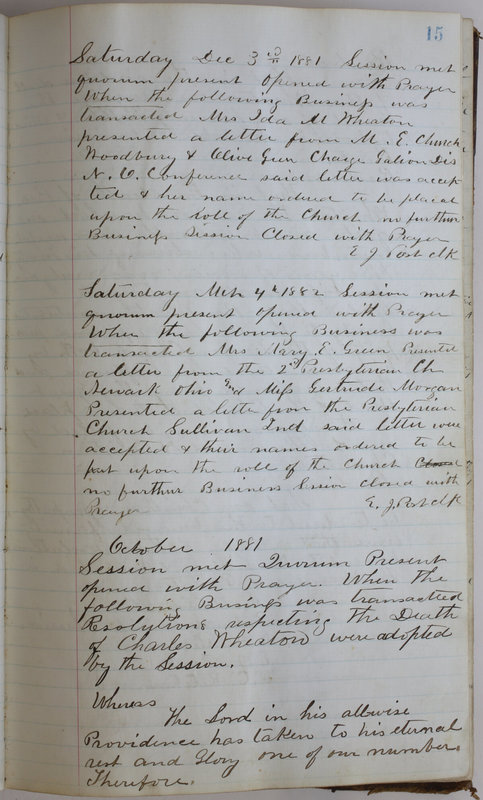 15
Saturday Dec 3rd 1881 Session met
quorum present opened with Prayer
When the following Business was
transacted Mrs Ida M Wheaton
presented a letter from M. E. Church
Woodbury & Olive Green Charge Galion Dis
N. O. Conference said letter was accep
ted & her name ordered to be placed
upon the roll of the Church no further
Business Session Closed with Prayer
E J Post clk
Saturday Mch 4th 1882 Session met
quorum present opened with Prayer
When the following Business was
transacted Mrs Mary E. Green Presented
a letter from the 2d Presbyterian Ch
Newark Ohio And Miss Gertrude Morgan
Presented a letter from the Presbyterian
Church Sullivan Ind said letter were
accepted & their names ordered to be
put upon the roll of the Church Closed
no furthur Business Session closed with
Prayer
E. J. Post clk
October 1881
Session met Quorum Present
opened with Prayer. When the
following Business was transacted
Resolutions respecting the Death
of Charles Wheaton were adopted
by the Session.
Wheress
The Lord in his allwise
Providence has taken to his eternal
rest and Glory one of our number
Therefore.